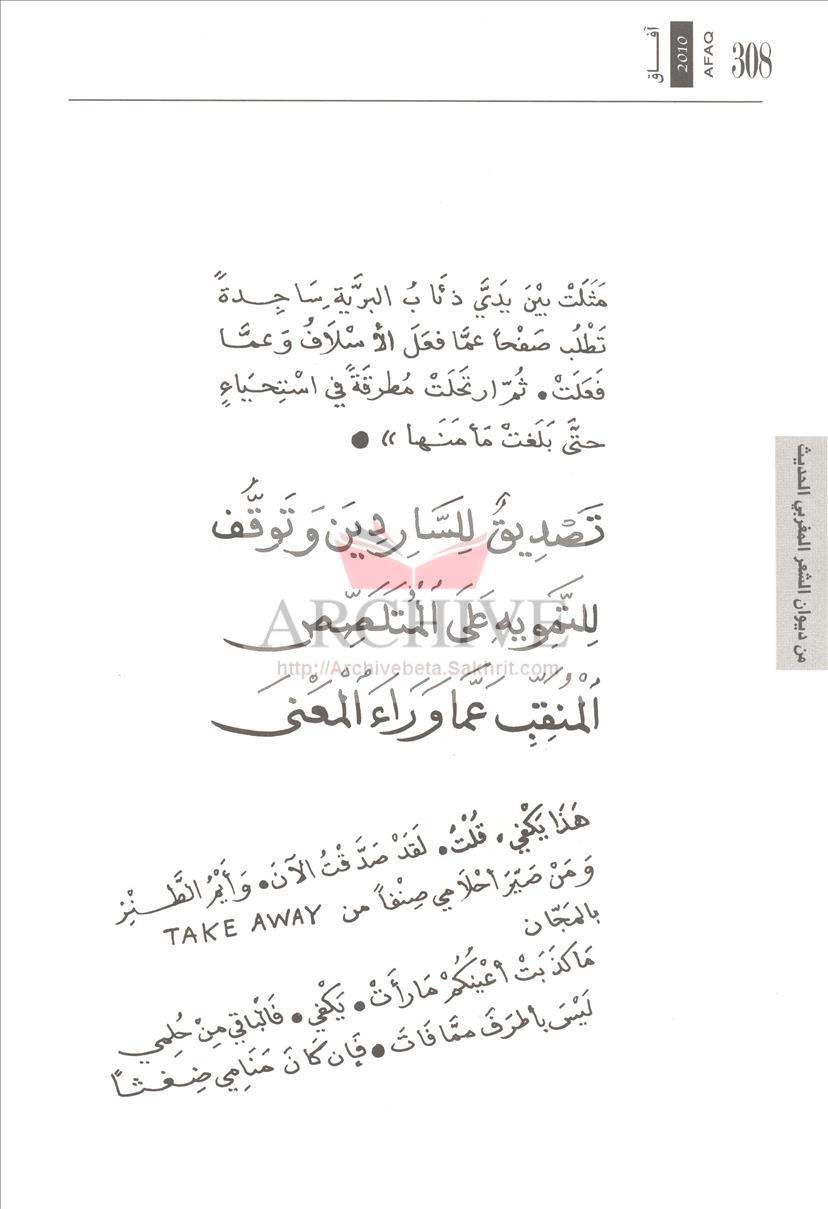 308
AFAQ
2010
آفـــاق
مَثَلَتْ بيْن يَدَيَّ ذئابُ البرَّية سَاجِدةً
تَطْلُب صَفْحاً عمَّا فعَلَ الأسْلَافُ وَعمَّا
فَعَلَتْ. ثُمّ ارتحَلَتْ مُطرِقَةً في اسْتِحْيَاءٍ
حتَّى بَلَغتْ مَأمَنَها »●
تَصْدِيقٌ لِلسَّارِدِينَ وَتَوَقُّف
ARCHIVE
لِلتَّمْوِيهِ عَلَى الْمُتَلَصِّصِ
http://Archivebeta.Sakhrit.com
اُلْمُنَقِّبِ عَمَّا وَرَاءَ اُلْمَعْنَى
هَذَا يَكْفي. قُلْتُ. لَقَدْ صَدَّقْتُ الآنَ. وَأيْمُ الطَّنْزِ
وَمَنْ صَيّرَ أحْلَامي صِنْفاً من TAKE AWAY
بالمَجّان
مَا كَذَبَتْ أعْيُنكُمْ مَا رأَتْ. يَكْفي. فَالْبَاقي مِنْ حُلمي
لَيْسَ بأطْرَفَ ممَّا فَاتَ. فَإن كَانَ مَنَامِي ضِغْثاً
من ديوان الشعر المغربي الحديث